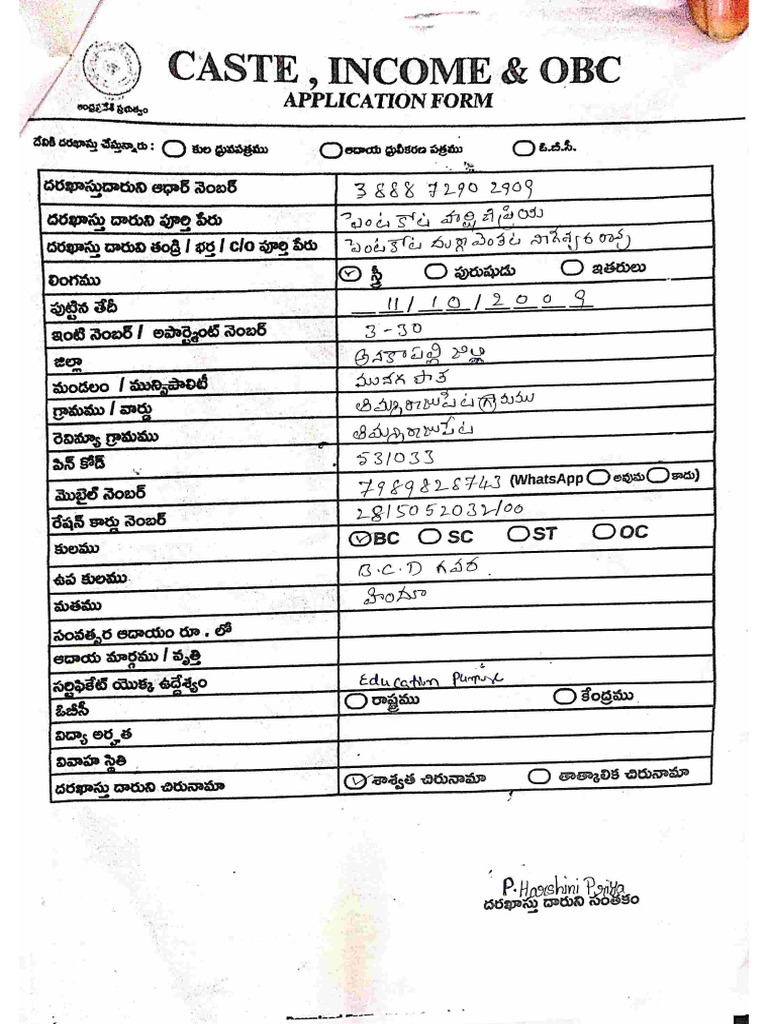 CASTE , INCOME & OBC
APPLICATION FORM
ఆంధ్రప్రదేశ్ ప్రభుత్వం
దేనికి దరఖాస్తు చేస్తున్నారు : కుల ధ్రువపత్రము ఆదాయ ధ్రువీకరణ పత్రము ఓ.బీ.సీ.
దరఖాస్తుదారుని ఆధార్ నెంబర్ 3888 7290 2909
దరఖాస్తు దారుని పూర్తి పేరు పెంటకోట హర్షిణి ప్రియ
దరఖాస్తు దారుని తండ్రి / భర్త / c/o పూర్తి పేరు పెంటకోట దుర్గా వెంకట నాగేశ్వర రావు
లింగము స్త్రీ పురుషుడు ఇతరులు
పుట్టిన తేదీ 11/10/2009
ఇంటి నెంబర్ / అపార్ట్మెంట్ నెంబర్ 3-30
జిల్లా అనకాపల్లి జిల్లా
మండలం / మున్సిపాలిటీ మునగపాక
గ్రామము / వార్డు తిమ్మరాజుపేట గ్రామము
రెవిన్యూ గ్రామము తిమ్మరాజుపేట
పిన్ కోడ్ 531033
మొబైల్ నెంబర్ 7989828743 (WhatsApp అవును కాదు)
రేషన్ కార్డు నెంబర్ 2815052032100
కులము BC SC ST OC
ఉప కులము B.C.D గవర
మతము హిందూ
సంవత్సర ఆదాయం రూ . లో
ఆదాయ మార్గము / వృత్తి
సర్టిఫికేట్ యొక్క ఉద్దేశ్యం Education
ఓబీసీ రాష్ట్రము కేంద్రము
విద్యా అర్హత
వివాహ స్థితి
దరఖాస్తు దారుని చిరునామా శాశ్వత చిరునామా తాత్కాలిక చిరునామా
P. Harshini Priya
దరఖాస్తు దారుని సంతకం